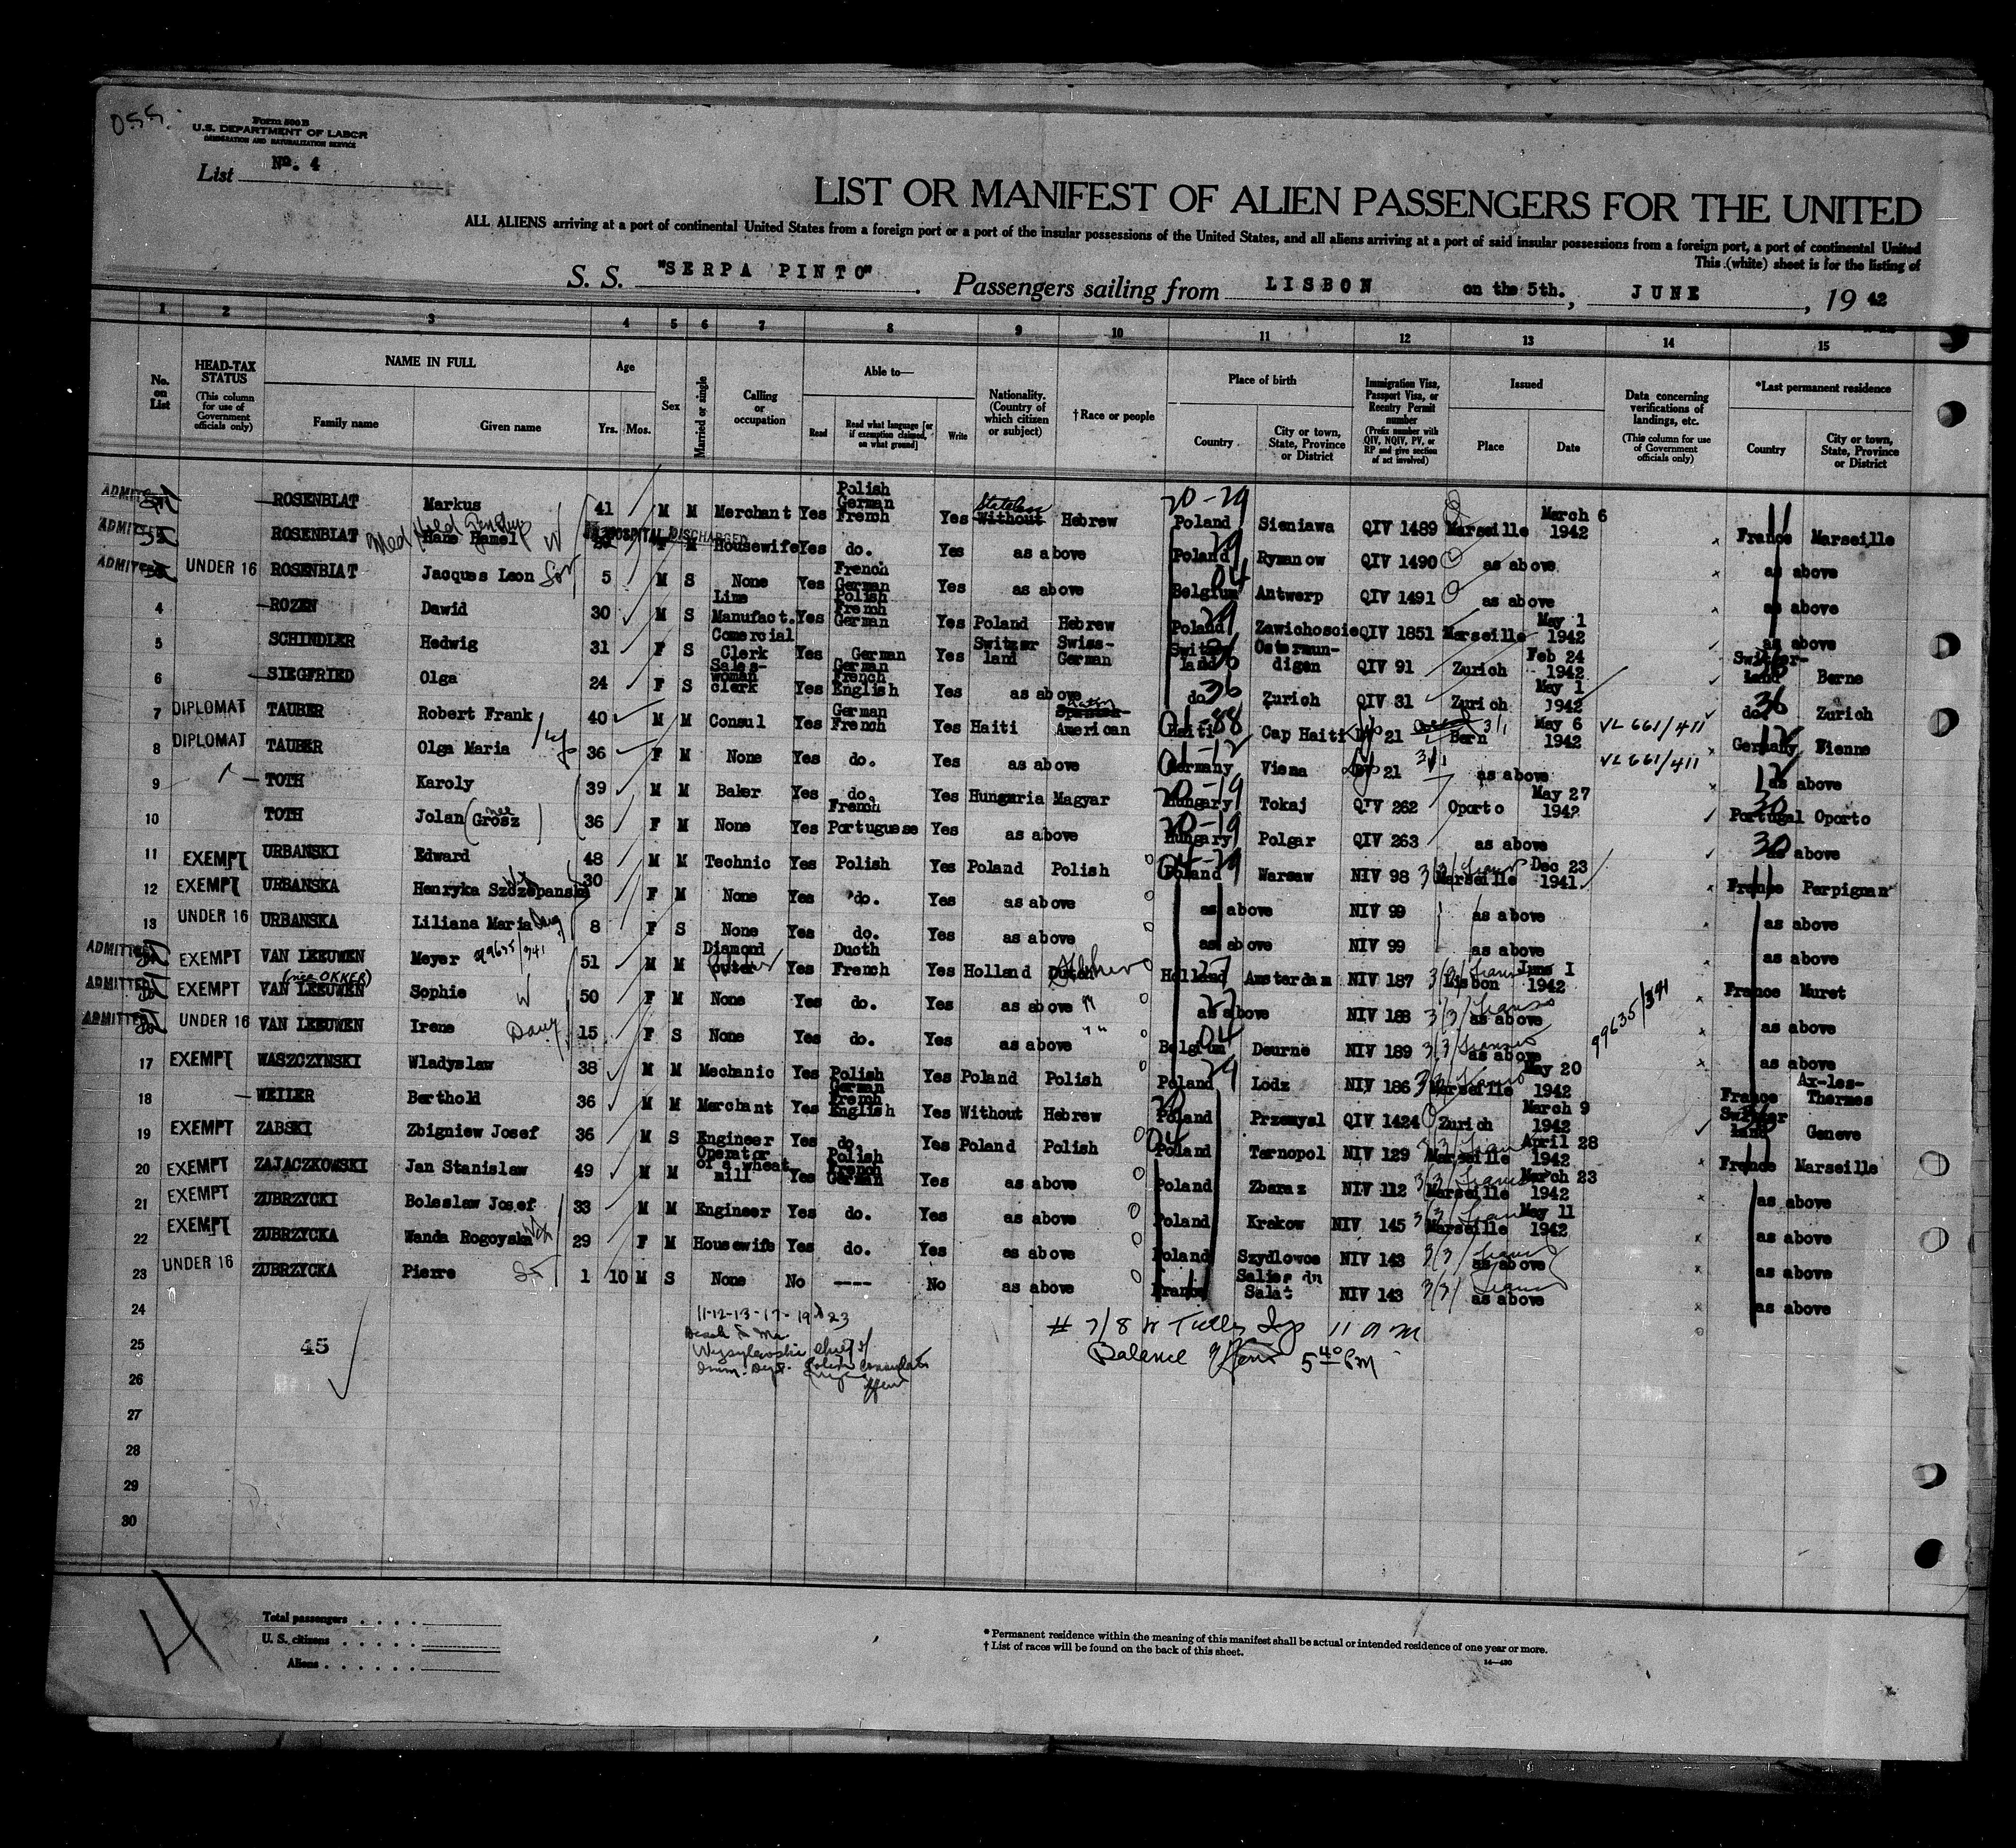 OSS.
Form 500 B
U.S. DEPARTMENT OF LABOR
IMMIGRATION AND NATURALIZATION SERVICE
List No. 4
LIST OR MANIFEST OF ALIEN PASSENGERS FOR THE UNITED
ALL ALIENS arriving at a port of continental United States from a foreign port or a port of the insular possessions of the United States, and all aliens arriving at a port of said insular possessions from a foreign port, a port of continental United
This (white) sheet is for the listing of
S. S. "SERPA PINTO" . Passengers sailing from LISBON on the 5th. , JUNE , 19 42
1 2 3 4 5 6 7 8 9 10 11 12 13 14 15
No. on List
HEAD-TAX STATUS (This column for use of Government officials only)
NAME IN FULL
Family name Given name
Age
Yrs. Mos.
Sex
Married or single
Calling or occupation
Able to—
Read Read what language [or if exemption claimed, on what ground] Write
Nationality. (Country of which citizen or subject)
†Race or people
Place of birth
Country City or town, State, Province or District
Immigration Visa, Passport Visa, or Reentry Permit number (Prefix number with QIV, NQIV, PV, or RP and give section of act involved)
Issued
Place Date
Data concerning verifications of landings, etc. (This column for use of Government officials only)
*Last permanent residence
Country City or town, State, Province or District
ADMITTED ROSENBLAT Markus 41 M M Merchant Yes Polish German French Yes Without Stateless Hebrew 20-29 Poland Sieniawa QIV 1489 Marseille March 6 1942 France Marseille
ADMITTED ROSENBLAT Hane Hamel W HOSPITAL DISCHARGED F M Housewife Yes do. Yes as above Poland Rymanow QIV 1490 as above as above
ADMITTED UNDER 16 ROSENBLAT Jacques Leon Son 5 M S None Yes French German Yes as above Belgium 04 Antwerp QIV 1491 as above as above
4 ROZEN Dawid 30 M S Lime Manufact. Yes Polish French German Yes Poland Hebrew Poland Zawichoscie QIV 1851 Marseille May 1 1942 as above
5 SCHINDLER Hedwig 31 F S Comercial Clerk Yes German Yes Switzerland Swiss-German Switzerland Ostermundigen QIV 91 Zurich Feb 24 1942 Switzerland Berne
6 SIEGFRIED Olga 24 F S Sales-woman clerk Yes German French English Yes as above do 36 Zurich QIV 31 Zurich May 1 1942 do 36 Zurich
7 DIPLOMAT TAUBER Robert Frank 40 M M Consul Yes German French Yes Haiti Spanish- American Haiti 88 Cap Haiti 21 Bern 3/1 May 6 1942 VL 661/411 Germany Vienne
8 DIPLOMAT TAUBER Olga Maria 36 F M None Yes do. Yes as above Germany Viena 21 3/1 as above VL 661/411 as above
9 TOTH Karoly 39 M M Baker Yes do. Yes Hungaria Magyar 20-19 Hungary Tokaj QIV 262 Oporto May 27 1942 Portugal 30 Oporto
10 TOTH Jolan (nee Grosz) 36 F M None Yes French Portuguese Yes as above 20-19 Hungary Polgar QIV 263 as above 30 as above
11 EXEMPT URBANSKI Edward 48 M M Technic Yes Polish Yes Poland Polish Poland Warsaw NIV 98 3/3 Marseille Dec 23 1941 France Perpignan
12 EXEMPT URBANSKA Henryka Szczepanska 30 F M None Yes do. Yes as above as above NIV 99 as above as above
13 UNDER 16 URBANSKA Liliana Maria Daug 8 F S None Yes do. Yes as above as above NIV 99 as above as above
ADMITTED EXEMPT VAN LEEUWEN Meyer 99635/341 51 M M Diamond Cuter Yes Ducth French Yes Holland Dutch Hebrew Holland Amsterdam NIV 187 3/3/ Lisbon June 1 1942 France Muret
ADMITTED EXEMPT VAN LEEUWEN (nee OKKER) Sophie W 50 F M None Yes do. Yes as above " as above NIV 188 3/3/ as above as above
ADMITTED UNDER 16 VAN LEEUWEN Irene Daug 15 F S None Yes do. Yes as above " " Belgium 04 Deurne NIV 189 3/3/ as above 99635/341 as above
17 EXEMPT WASZCZYNSKI Wladyslaw 38 M M Mechanic Yes Polish Yes Poland Polish Poland Lodz NIV 186 3/3/ Marseille May 20 1942 France Ax-les-Thermes
18 WEILER Berthold 36 M M Merchant Yes German French English Yes Without Hebrew Poland Przemysl QIV 1424 Zurich March 9 1942 Switzerland Geneve
19 EXEMPT ZABSKI Zbigniew Josef 36 M S Engineer Yes do. Yes Poland Polish Poland Tarnopol NIV 129 3/3/ Marseille April 28 1942 France Marseille
20 EXEMPT ZAJACZKOWSKI Jan Stanislaw 49 M M Operator of a wheat mill Yes Polish French German Yes as above Poland Zbaraz NIV 112 3/3/ Marseille March 23 1942 as above
21 EXEMPT ZUBRZYCKI Boleslaw Josef 33 M M Engineer Yes do. Yes as above Poland Krakow NIV 145 3/3/ Marseille May 11 1942 as above
22 EXEMPT ZUBRZYCKA Wanda Rogoyska 29 F M Housewife Yes do. Yes as above Poland Szydlowce NIV 143 3/3/ as above as above
23 UNDER 16 ZUBRZYCKA Pierre 1 10 M S None No ---- No as above France Salies du Salat NIV 143 3/3/ as above as above
24
11-12-13-17-19 & 23
# 7/8 11 am
25 45
Balance 5 40 PM
26
27
28
29
30
4
Total passengers . . . .
U. S. citizens . . . . .
Aliens . . . . . .
* Permanent residence within the meaning of this manifest shall be actual or intended residence of one year or more.
† List of races will be found on the back of this sheet.
14—430